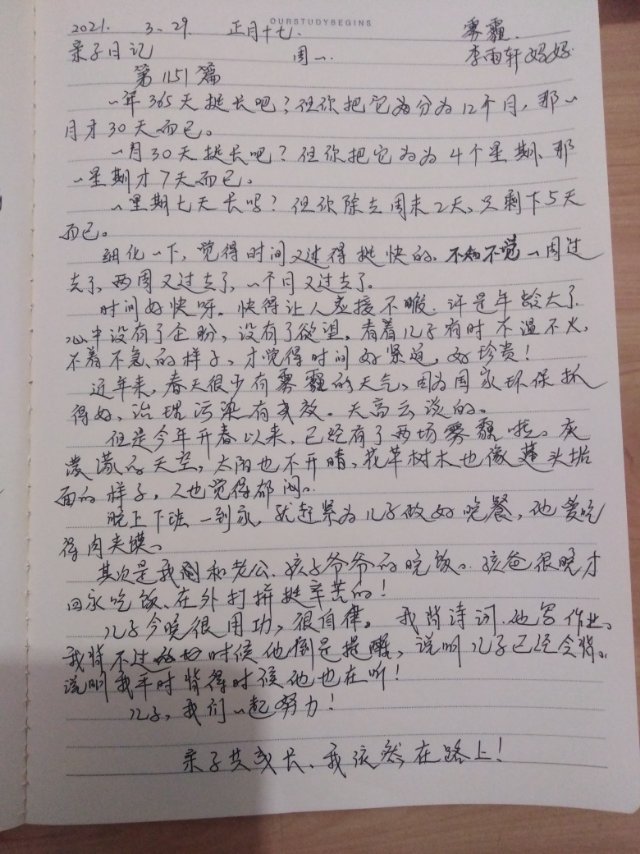 OURSTUDYBEGINS
2021. 3.29. 正月十七. 雾霾.
亲子日记 周一. 李雨轩妈妈
第1151篇
一年365天挺长吧？但你把它分为12个月，那一
月才30天而已。
一月30天挺长吧？但你把它为为4个星期、那
一星期才7天而已。
一星期七天长吗？但你除去周末2天、只剩下5天
而已。
细化一下，觉得时间又过得挺快的。不知不觉一周过
去了，两周又过去了，一个月又过去了。
时间好快呀。快得让人应接不暇。许是年龄大了.
心中没有了企盼，没有了欲望，看着儿子有时不温不火、
不着不急、的样子，才觉得时间好紧迫，好珍贵！
近年来，春天很少有雾霾的天气、因为国家环保抓
得好、治理污染有成效。天高云淡的。
但是今年开春以来、已经有了两场雾霾啦。灰
濛濛的天空，太阳也不开晴，花草树木也像蓬头垢
面的样子，人也觉得郁闷。
晚上下班一到家，就赶紧为儿子做好晚餐，他爱吃
得肉夹馍。
其次是我和老公、孩子爷爷的晚饭。孩爸很晚才
回家吃饭、在外打拼挺辛苦的！
儿子今晚很用功，很自律。我背诗词.他写作业.
我背不过的时候他倒是提醒，说明儿子已经会背。
说明我平时背得时候他也在听！
儿子，我们一起努力！
亲子共成长、我依然在路上！